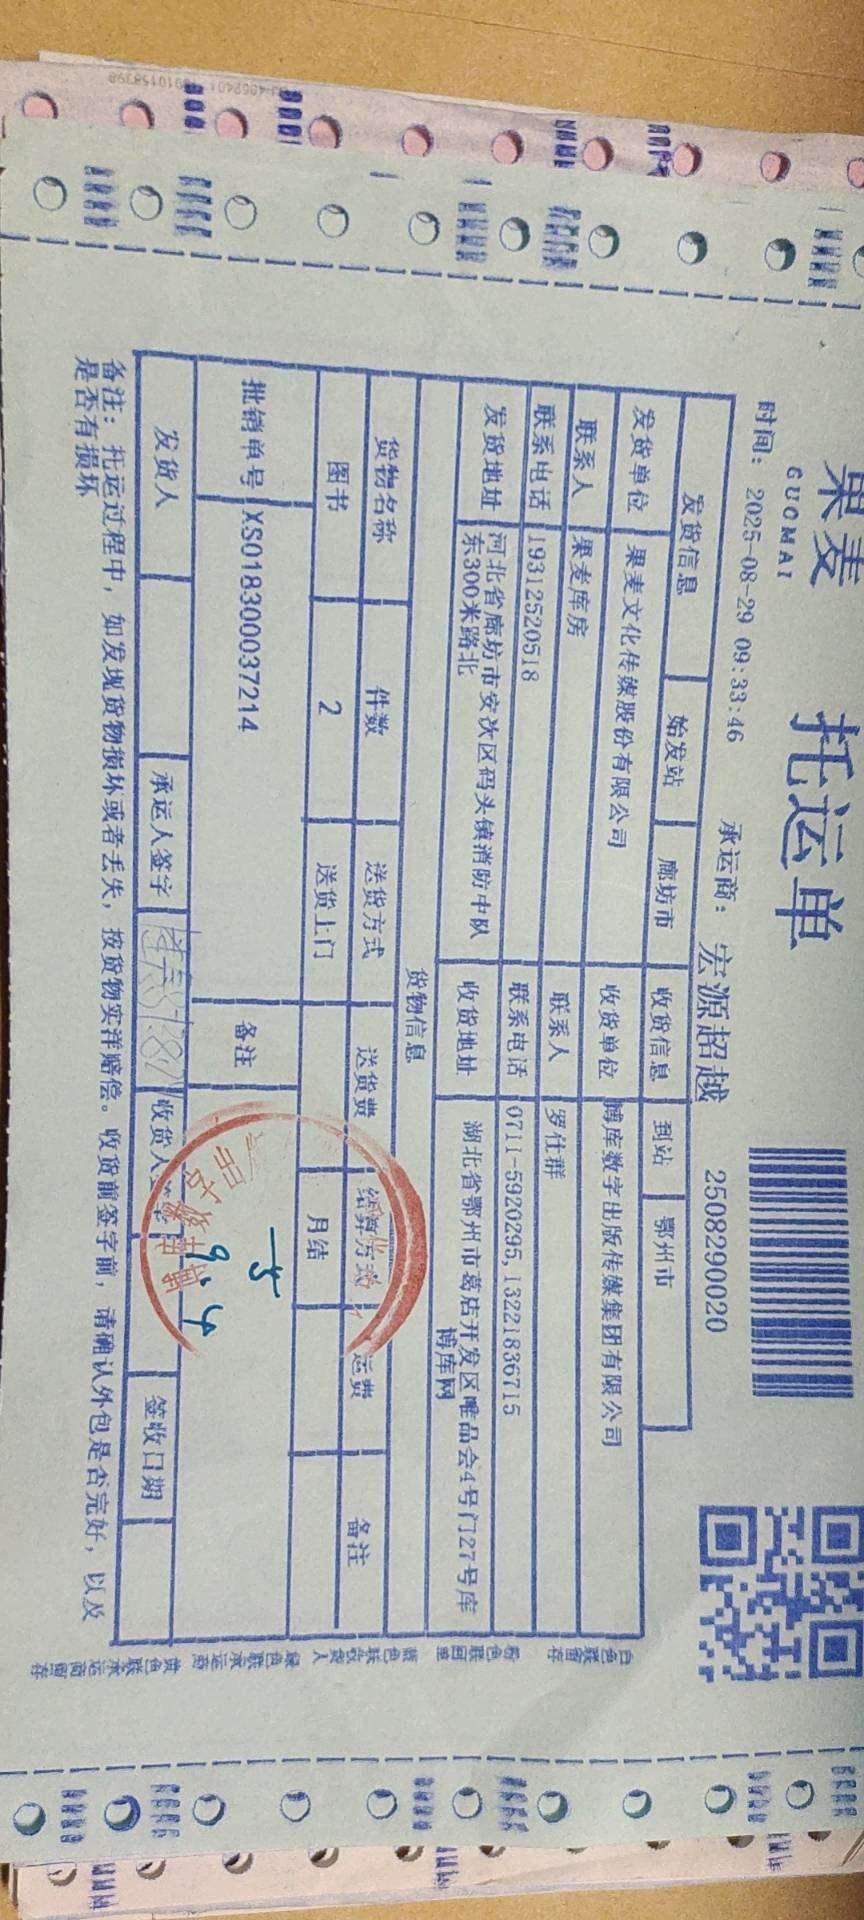 果麦 托运单
GUOMAI
时间: 2025-08-29 09:33:46 承运商: 宏源超越 2508290020
发货信息 始发站 廊坊市 收货信息 到站 鄂州市
发货单位 果麦文化传媒股份有限公司 收货单位 博库数字出版传媒集团有限公司
联系人 果麦库房 联系人 罗仕群
联系电话 19312520518 联系电话 0711-5920295,13221836715
发货地址 河北省廊坊市安次区码头镇消防中队东300米路北 收货地址 湖北省鄂州市葛店开发区唯品会4号门27号库博库网
货物信息
货物名称 件数 送货方式 送货费 结算方式 运费 备注
图书 2 送货上门 月结
批销单号 XS018300037214 备注
发货人 承运人签字 收货人 签收日期
备注: 托运过程中, 如发现货物损坏或者丢失, 按货物实洋赔偿。收货前签字前, 请确认外包是否完好, 以及
是否有损坏
白色联留存
粉色联回里
蓝色联收货人
绿色联承运商
黄色联承运商留存
博库数字出
9.4